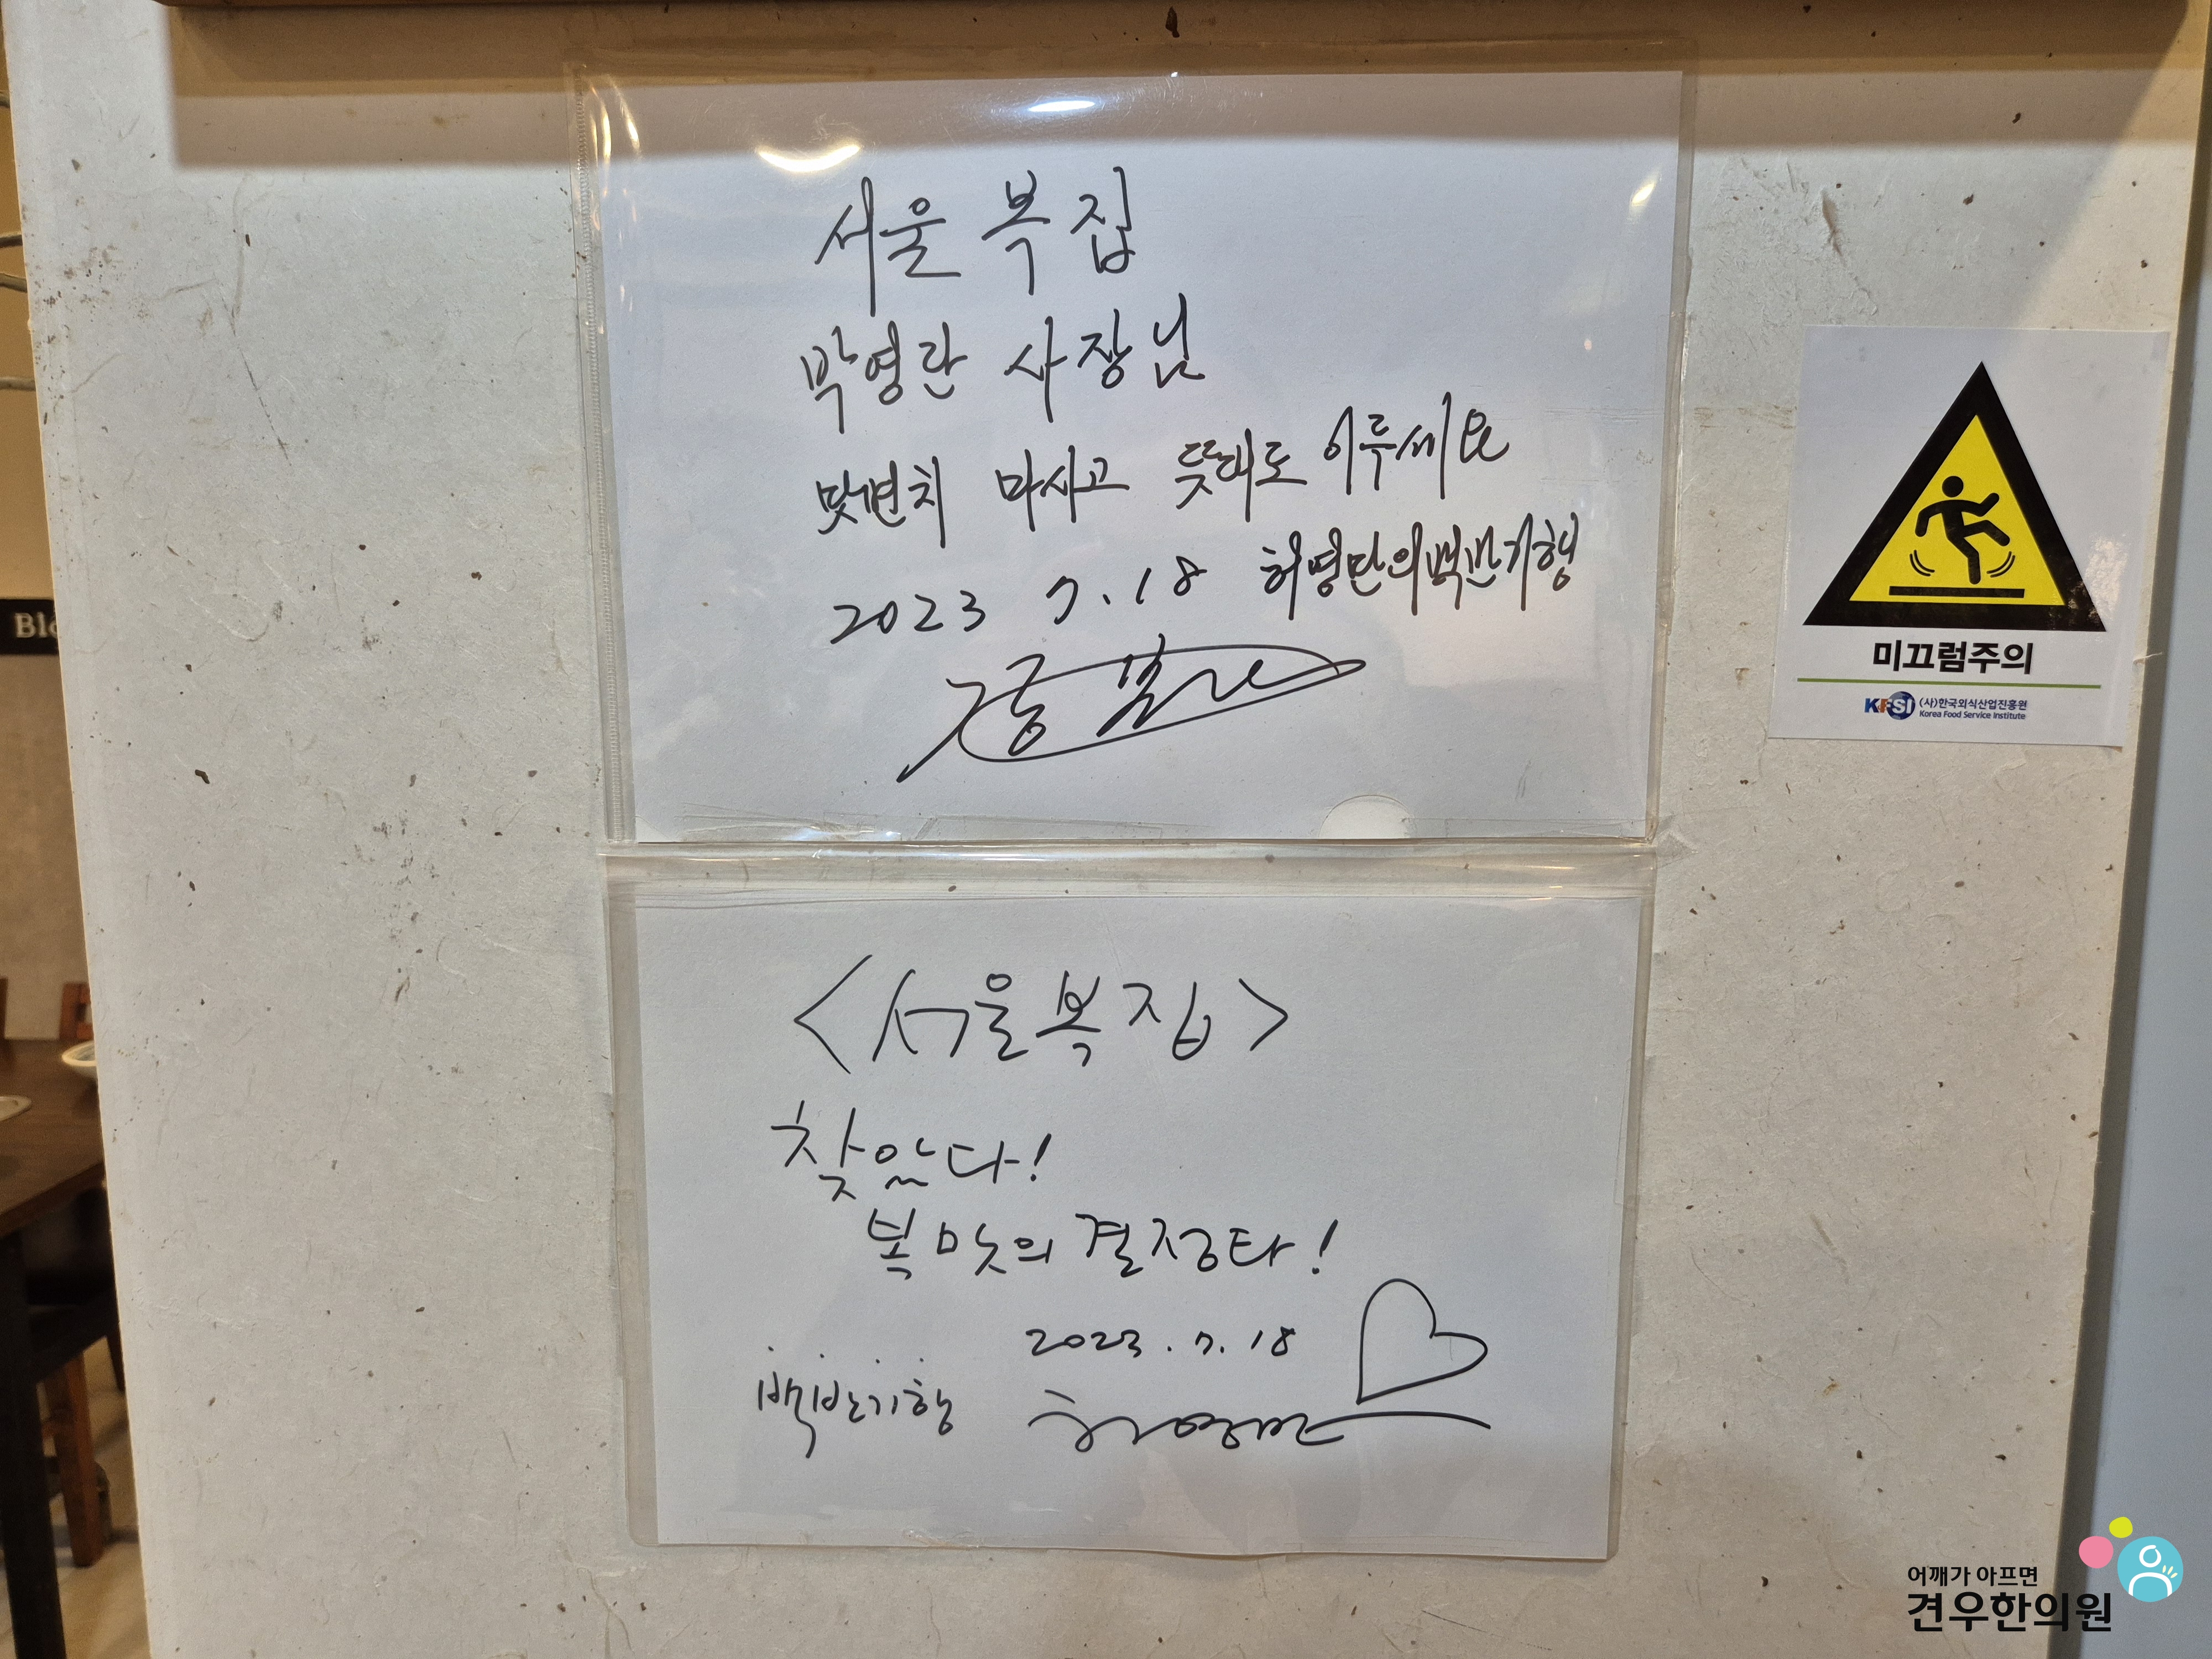 서울 복집
박영란 사장님
맟변치 마시고 뜻대로 이루세요
2023 7.18 허영만의백반기행
<서울복집>
찾았다!
복 맛의 결정타!
2023.7.18
백반기행 허영만
Blo
미끄럼주의
KFSI (사)한국외식산업진흥원
Korea Food Service Institute
어깨가 아프면
견우한의원